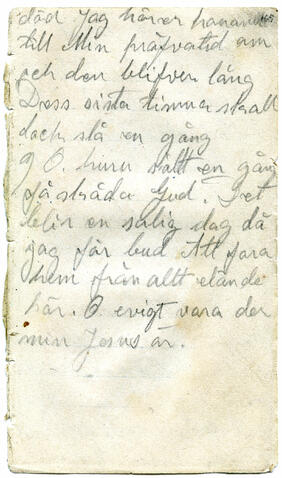 död Jag hörer hanan
165
till Min pröfvotid om
och den blifver lång
Dess sista timma skall
dock slå en gång
9 O. huru sält en gång
få skåda Gud. Det
blir en salig dag då
jag får bud Att fara
hem från allt elände
här. O evigt vara der
min Jesus är.